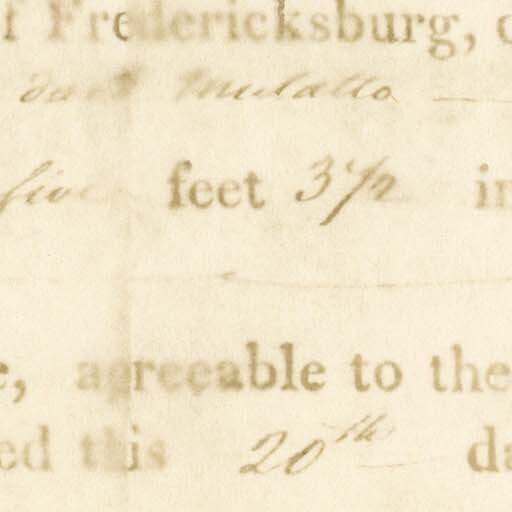 f Fredericksburg, c
dark Mulatto
five feet 3 1/2 in
e, agreeable to the
ed this 20th da